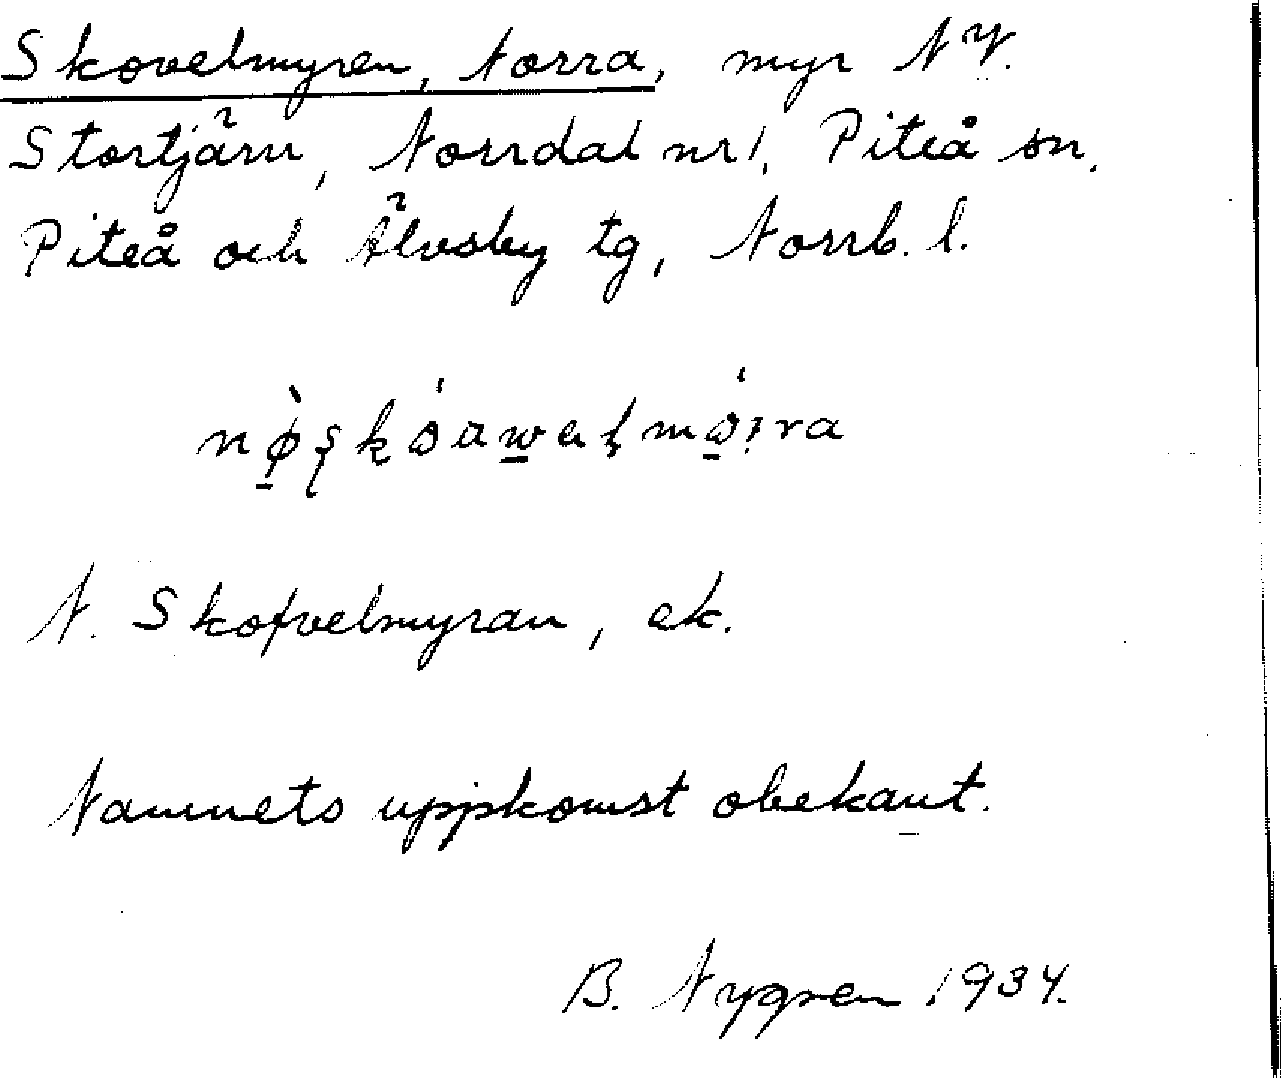 Skovelmyren, Norra, myr NV.
Stortjärn, Norrdal nr 1, Piteå sn,
Piteå och Älvsby tg, Norrb. l.
N. Skofvelmyran, ek.
Namnets uppkomst obekant.
B. Nygren 1934.